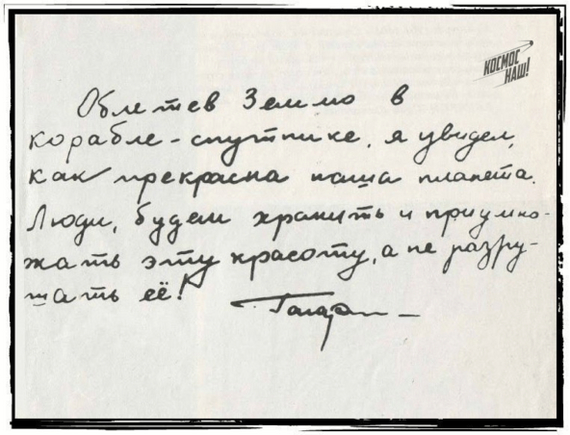 КОСМОС
НАШ!
Облетев Землю в
корабле-спутнике, я увидел,
как прекрасна наша планета.
Люди, будем хранить и приумно-
жать эту красоту, а не разру-
шать её!
Гагарин